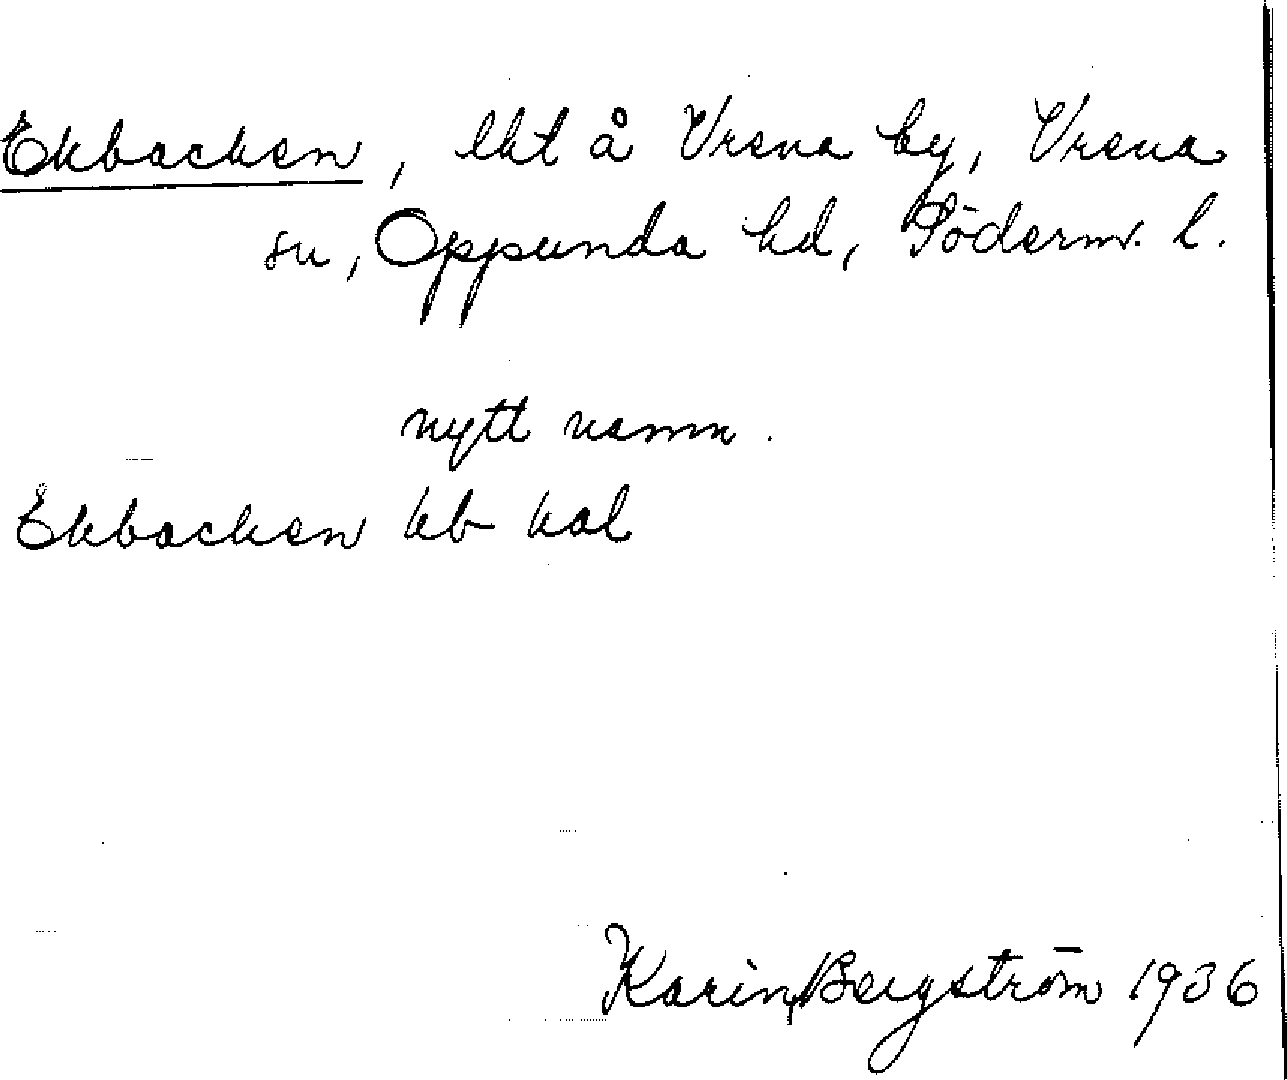 Ekbacken, lht å Vrena by, Vrena
sn, Oppunda hd, Söderm. l.
nytt namn.
Ekbacken hb kal
Karin Bergström 1936